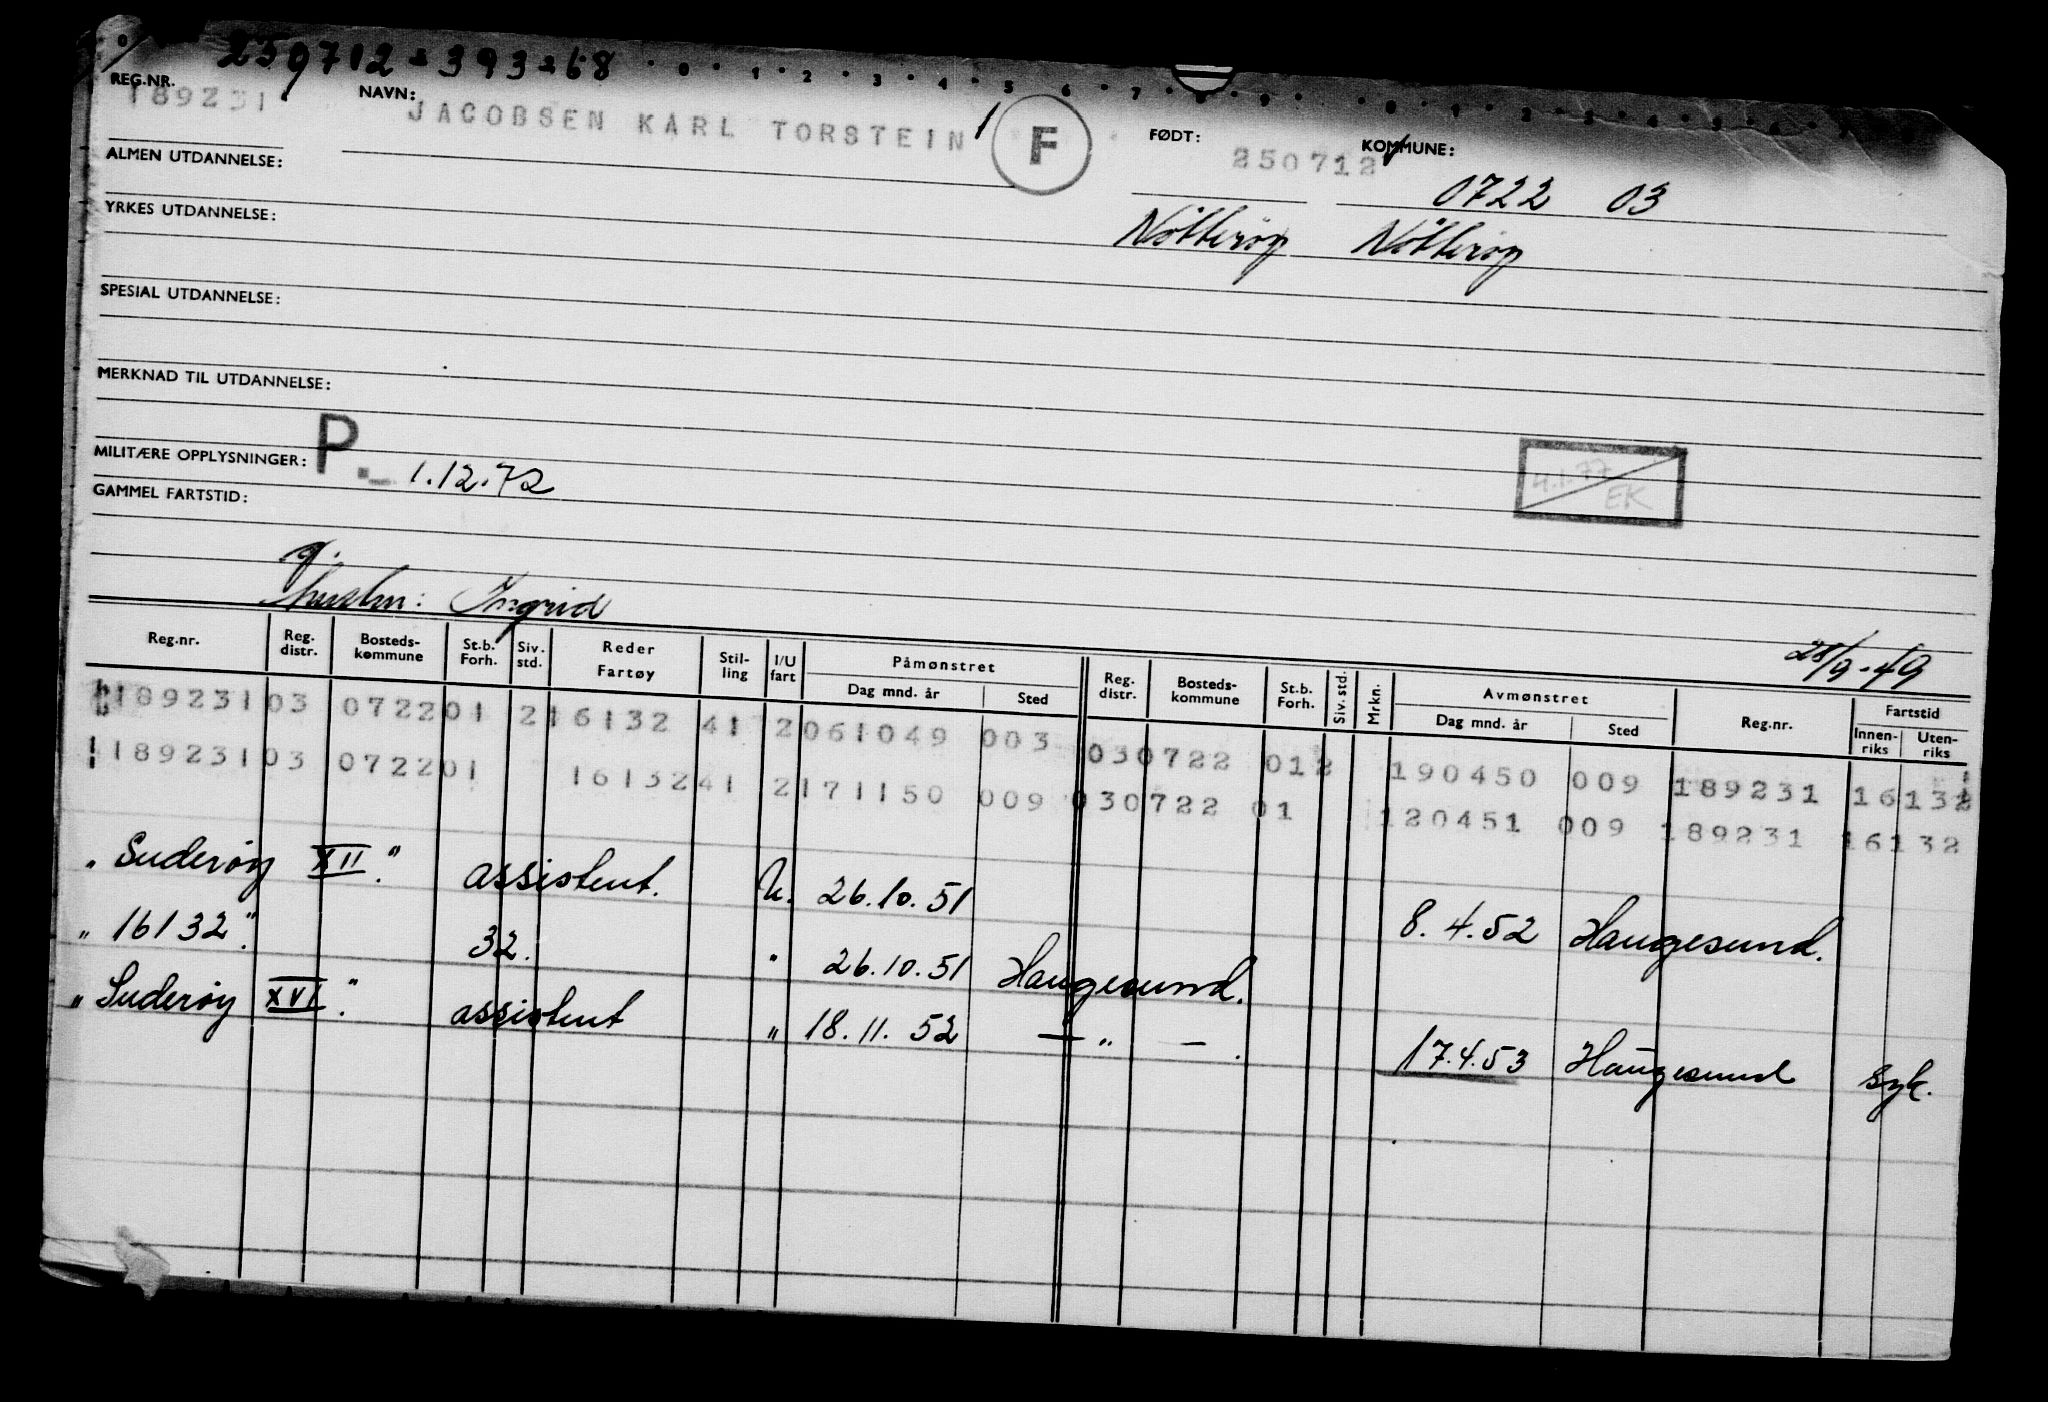 250712 - 393 - 68
0 1 2 3 4 5 6 7 8 9 0 1 2 3 4 5 6 7
REG.NR. 189231 NAVN: JACOBSEN KARL TORSTEIN F FØDT: 250712 KOMMUNE: 0722 03
ALMEN UTDANNELSE:
YRKES UTDANNELSE: Nøtterøy Nøtterøy
SPESIAL UTDANNELSE:
MERKNAD TIL UTDANNELSE:
MILITÆRE OPPLYSNINGER: P. 1.12.72
4.1.77
EK
GAMMEL FARTSTID:
g.
Hustru: Ingrid
28/9-49
Reg.nr. Reg. distr. Bosteds-kommune St.b. Forh. Siv. std. Reder Fartøy Stil-ling I/U fart Påmønstret Dag mnd. år Sted Reg. distr. Bosteds-kommune St.b. Forh. Siv. std. Mrkn. Avmønstret Dag mnd. år Sted Reg.nr. Fartstid Innen-riks Uten-riks
189231 03 0722 01 2 16132 41 2 061049 003 03 0722 01 2 190450 009 189231 16132
189231 03 0722 01 16132 41 2 171150 009 03 0722 01 120451 009 189231 16132
„Suderøy XII." assistent. U. 26.10.51 8.4.52 Haugesund.
„16132". 32. " 26.10.51 Haugesund.
„Suderøy XVI". assistent „ 18.11.52 — „ — . 17.4.53 Haugesund syk.